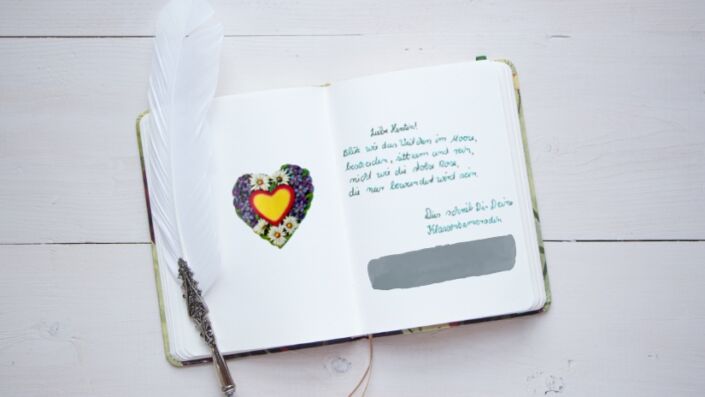 Liebe Kerstin!
Blüh wie das Veilchen im Moose,
bescheiden, sittsam und rein,
nicht wie die stolze Rose,
die nur bewundert sein.
Das schrieb Dir Deine
Klassenkameradin